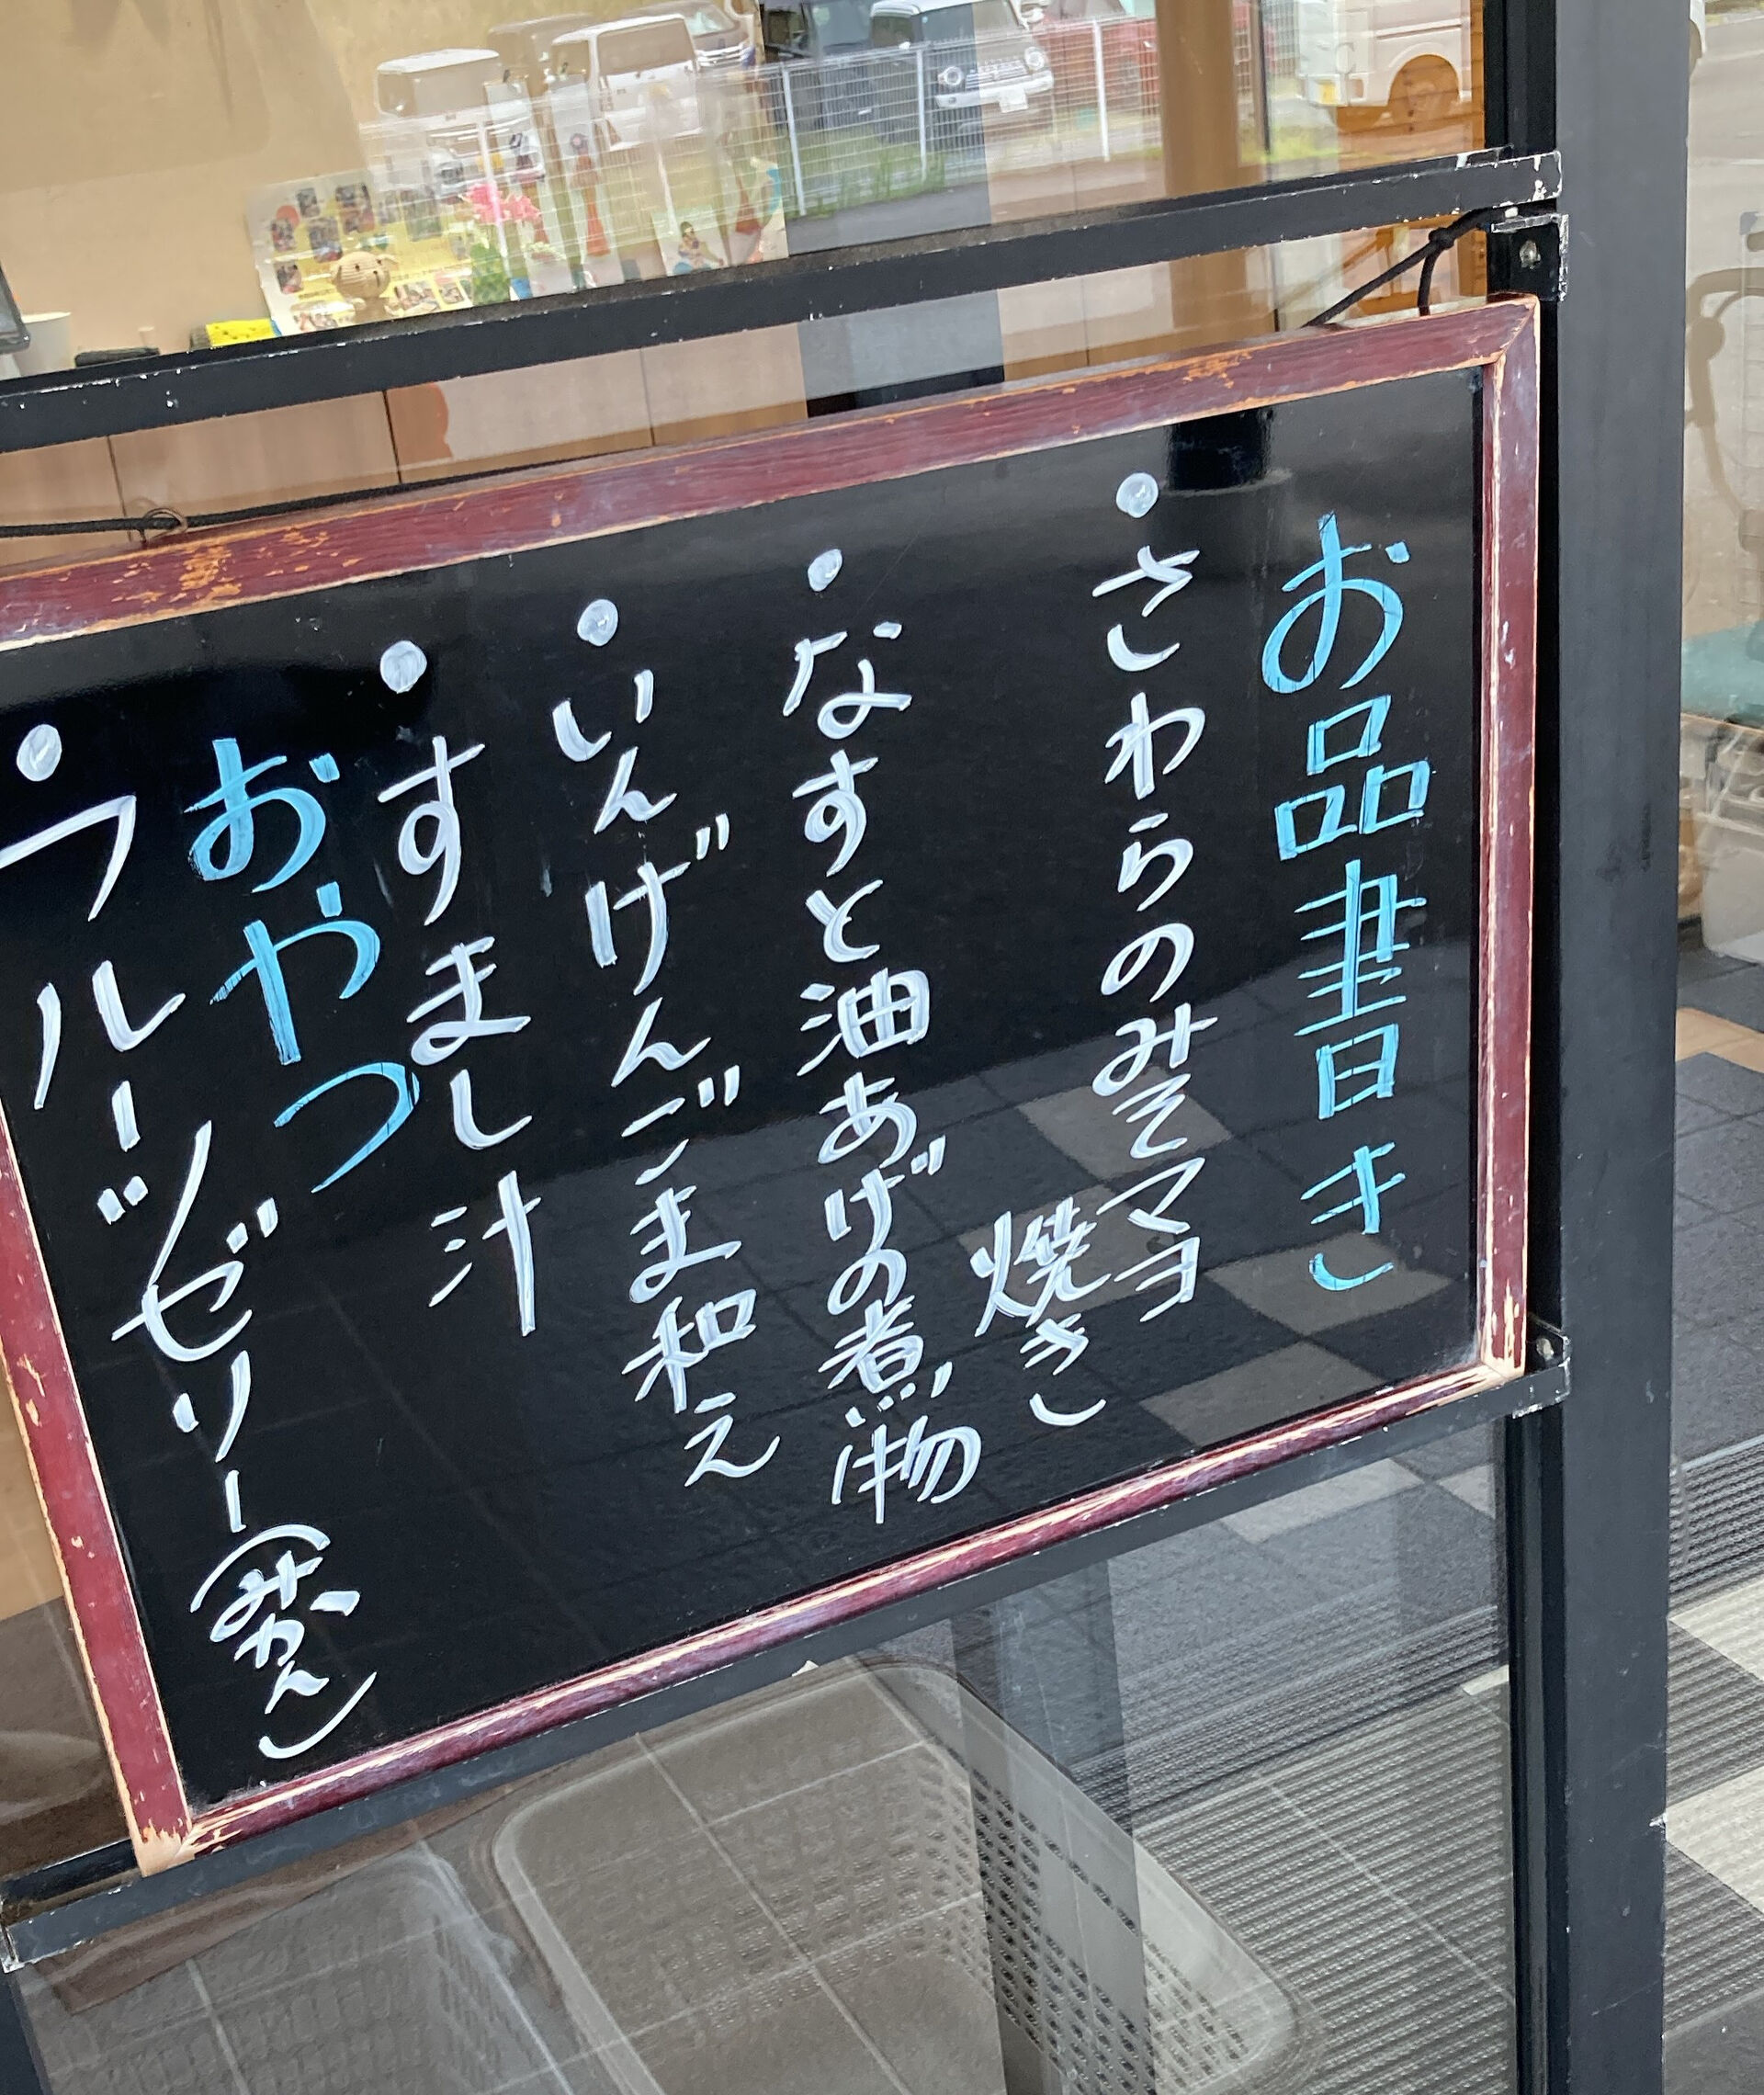 お品書き
・さわらのみそマヨ
焼き
・なすと油あげの煮物
・いんげんごま和え
・すまし汁
おやつ
・フルーツゼリー(みかん)